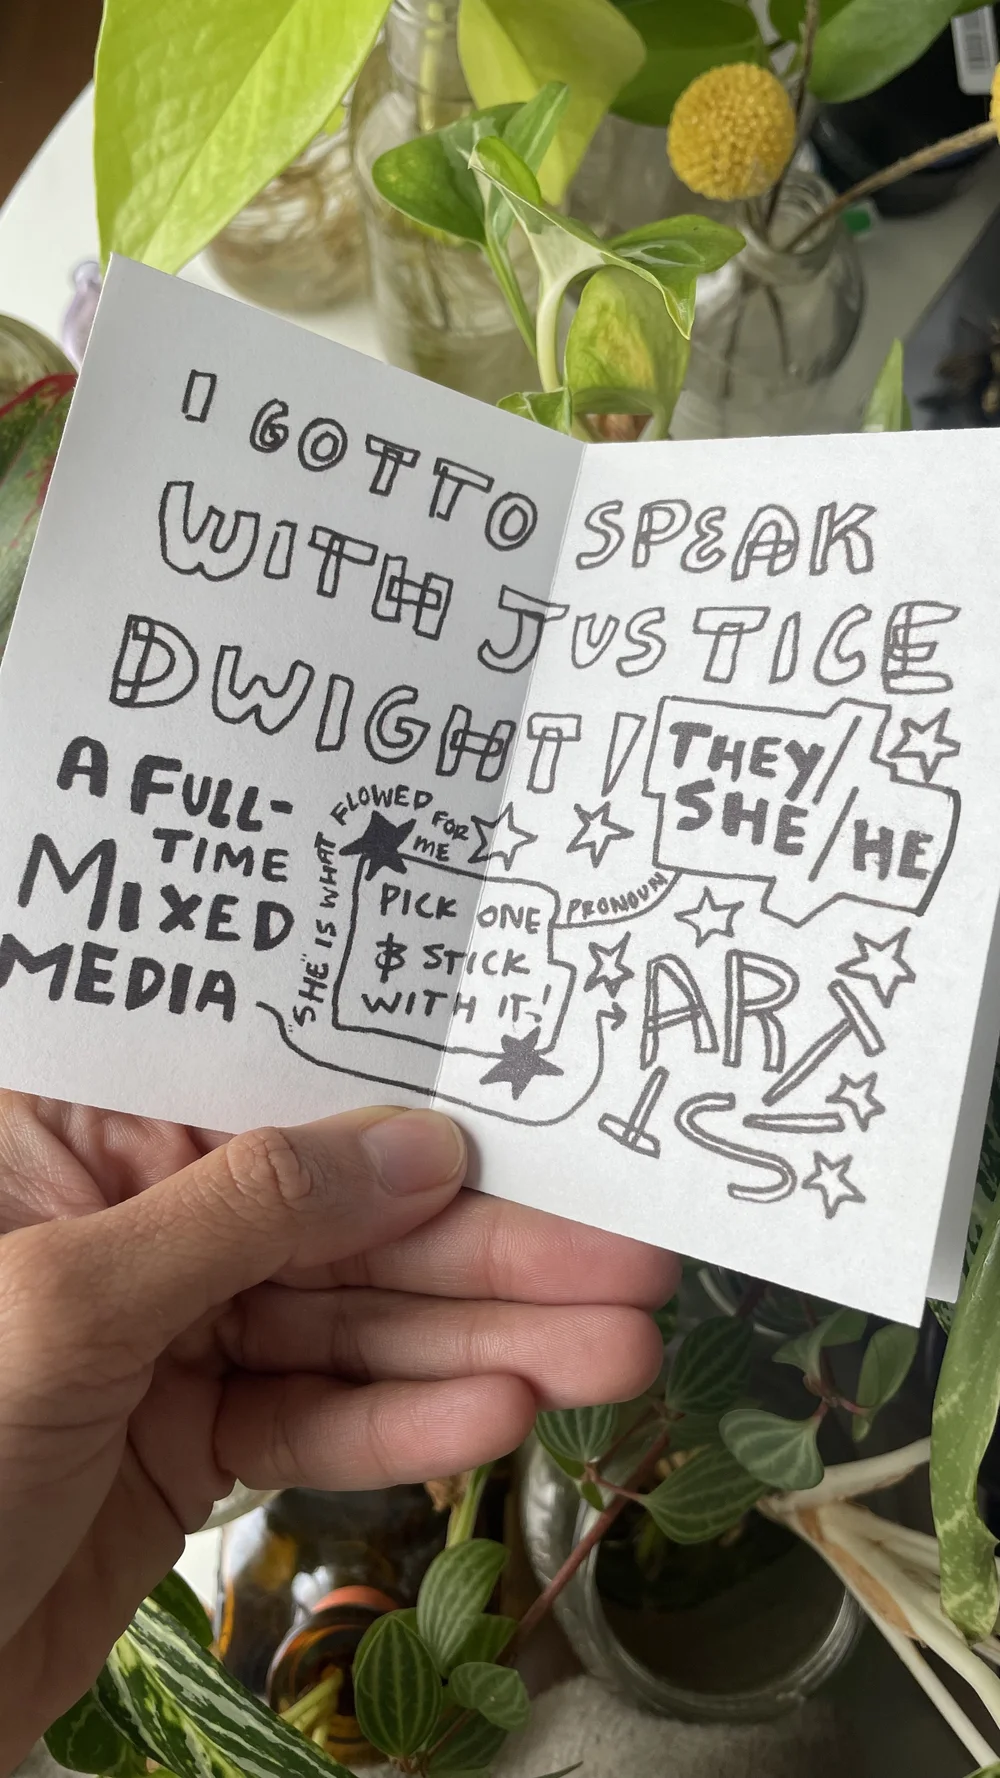 I GOT TO SPEAK
WITH JUSTICE
DWIGHT!
THEY/
SHE/HE
A FULL-
TIME
MIXED
MEDIA
"SHE" IS WHAT FLOWED FOR ME
PICK ONE
& STICK
WITH IT!
PRONOUN
ART
IST